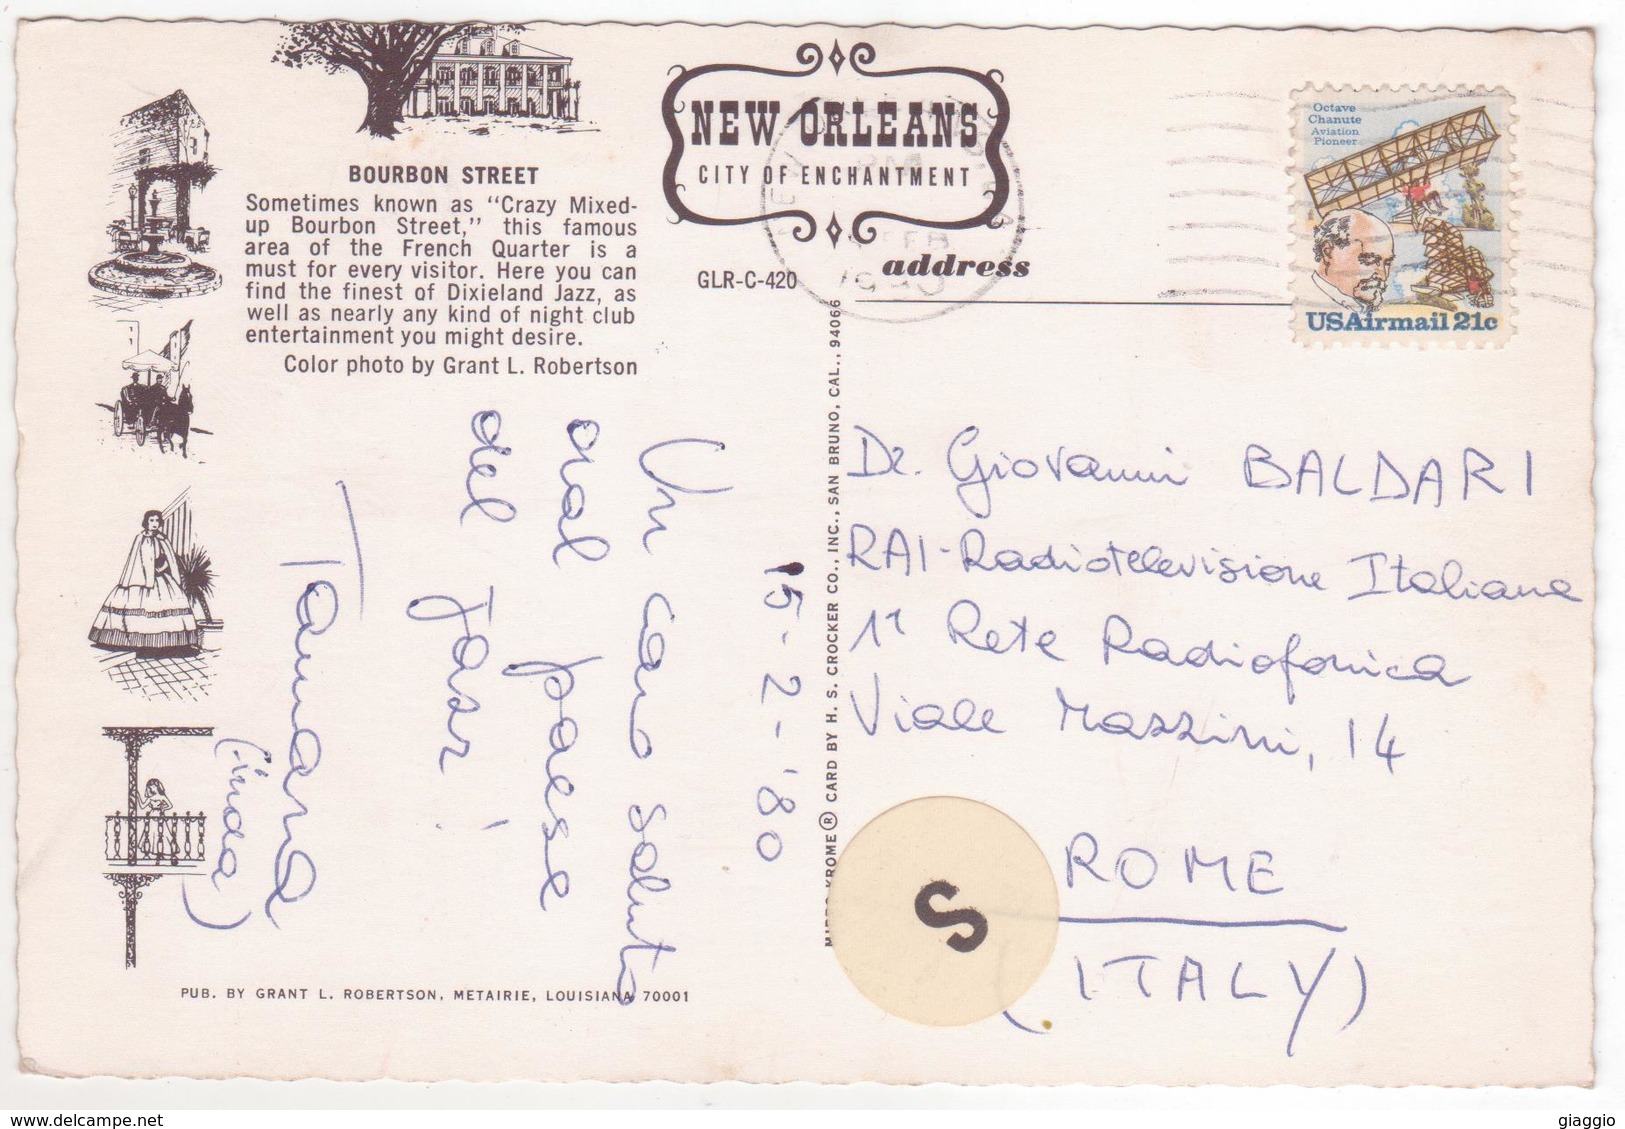 NEW ORLEANS
CITY OF ENCHANTMENT
BOURBON STREET
Sometimes known as "Crazy Mixed-
up Bourbon Street," this famous
area of the French Quarter is a
must for every visitor. Here you can
find the finest of Dixieland Jazz, as
well as nearly any kind of night club
entertainment you might desire.
Color photo by Grant L. Robertson
GLR-C-420
address
Octave
Chanute
Aviation
Pioneer
USAirmail 21c
15-2-'80
Un caro saluto
dal paese
del Jazz!
Tamara
(inda)
Dr. Giovanni BALDARI
RAI-Radiotelevisione Italiana
1ª Rete Radiofonica
Viale Mazzini, 14
ROME
(ITALY)
S
KROME® CARD BY H. S. CROCKER CO., INC., SAN BRUNO, CAL., 94066
PUB. BY GRANT L. ROBERTSON, METAIRIE, LOUISIANA 70001
delcampe.net
giaggio